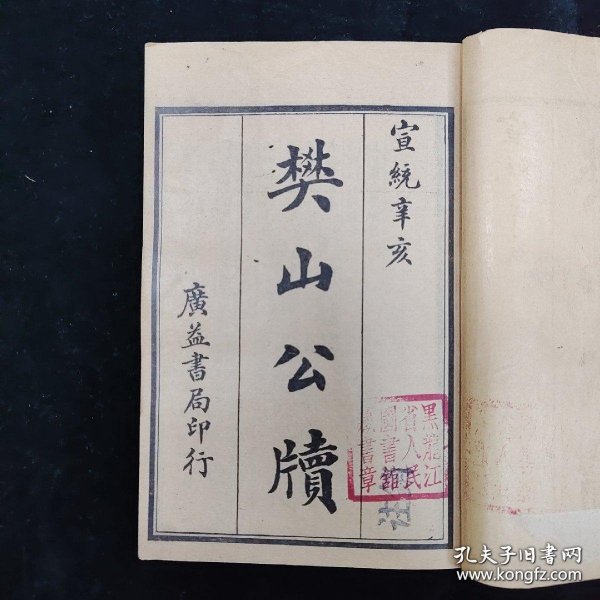 宣統辛亥
樊山公牘
廣益書局印行
黑龍江
省人民
圖書館
藏書章
孔夫子旧书网
www.kongfz.com